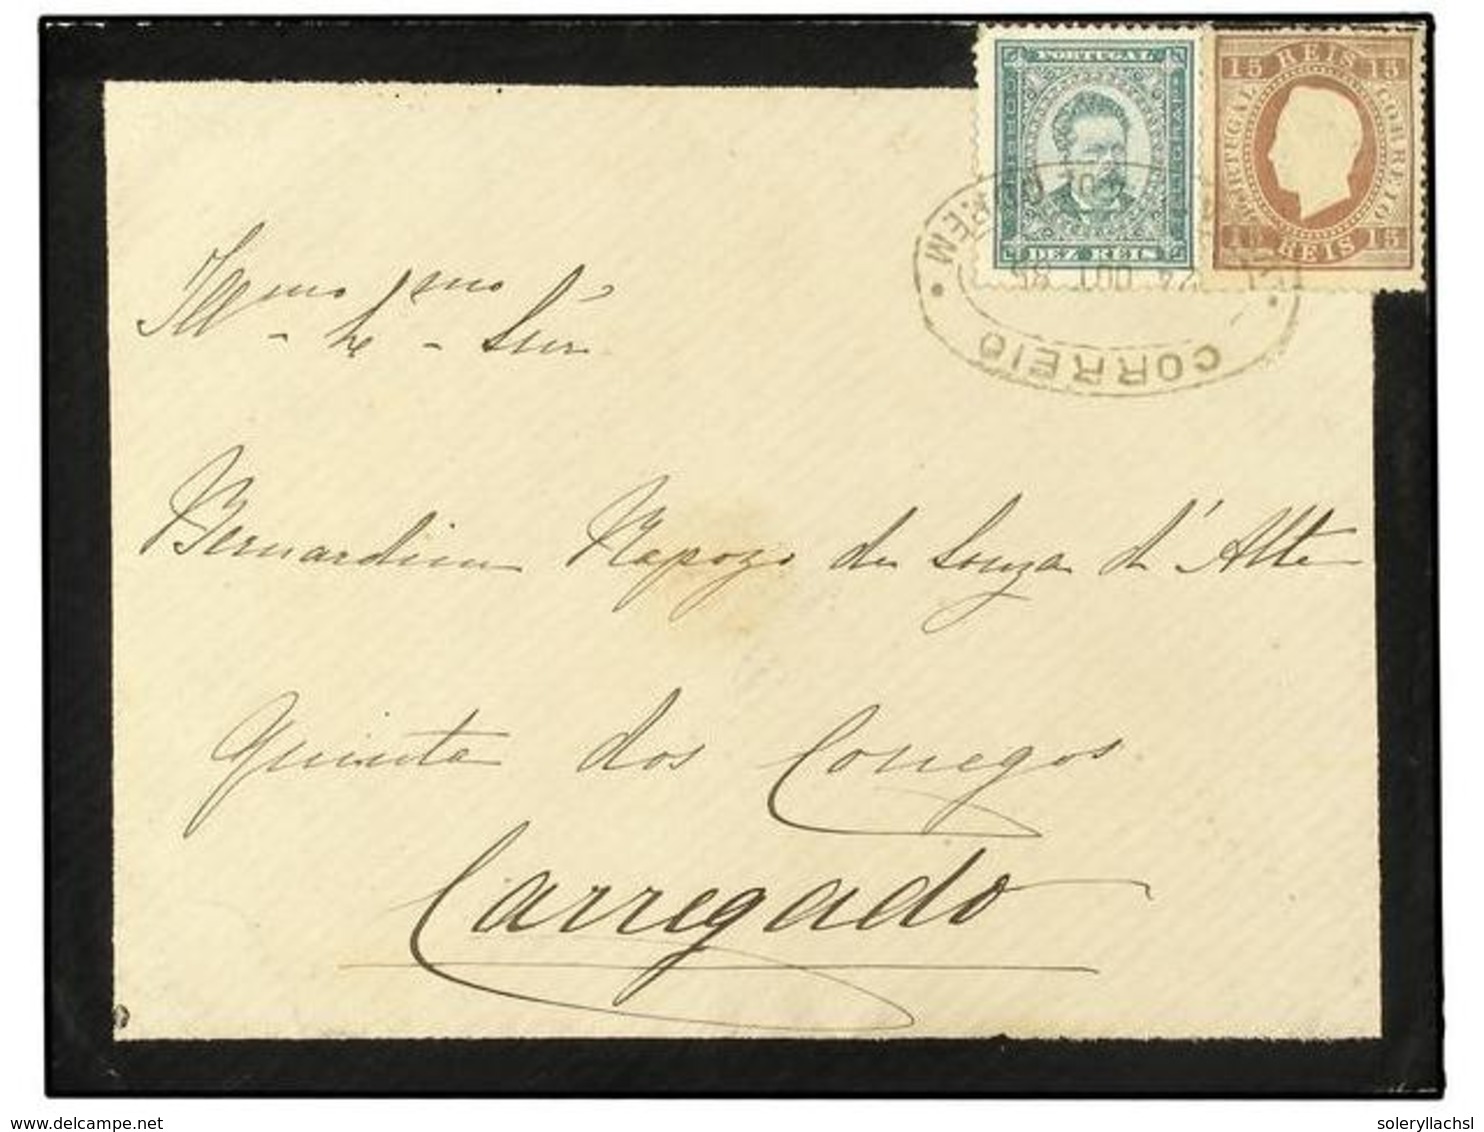 PORTUGAL
DEZ REIS
15 REIS 15
PORTUGAL CORREIO
15 REIS 15
REM
24 OUT
CORREIO
Snr
Bernardim Rapozo de Souza d'Alte
Quinta dos Conegos
Carregado
delcampe.net
soleryllachsl